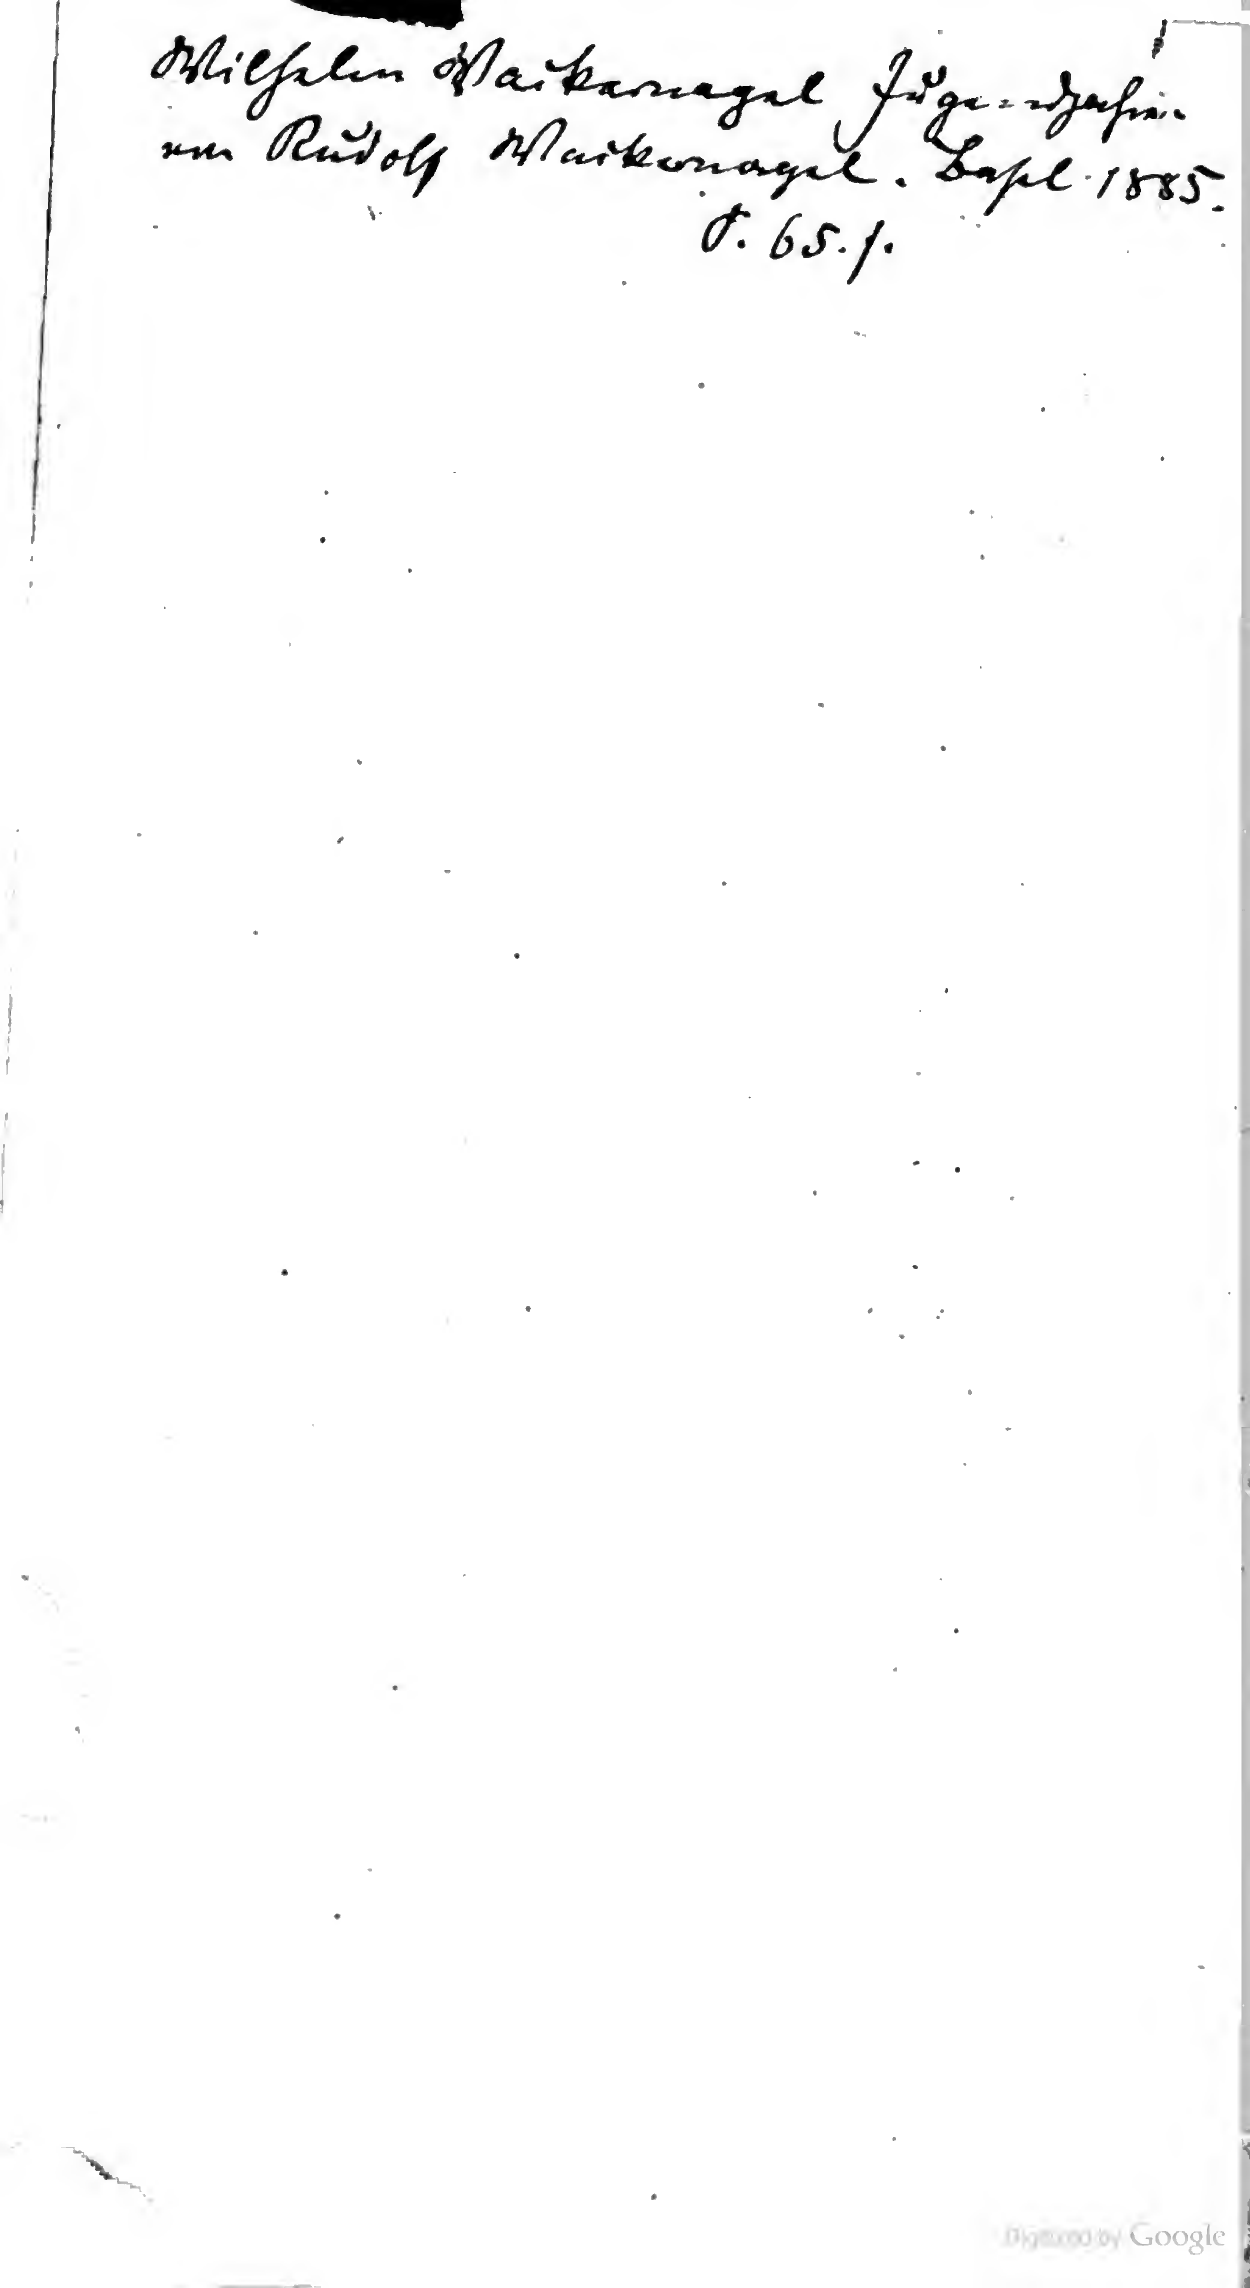 Wilhelm Wackernagel Jugendjahre
von Rudolf Wackernagel. Basel 1885.
S. 65. f.
Digitized by Google